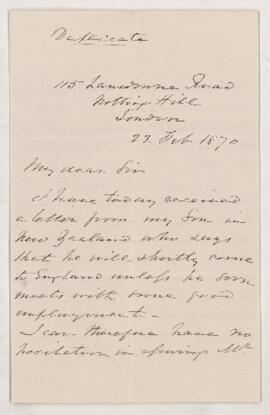 Duplicate
115 Lansdowne Road
Notting Hill
London
22 Feb 1870
My dear Sir
I have today received
a letter from my Son in
New Zealand who says
that he will shortly come
to England unless he soon
meets with some good
employment.
I can therefore have no
hesitation in asking Mr